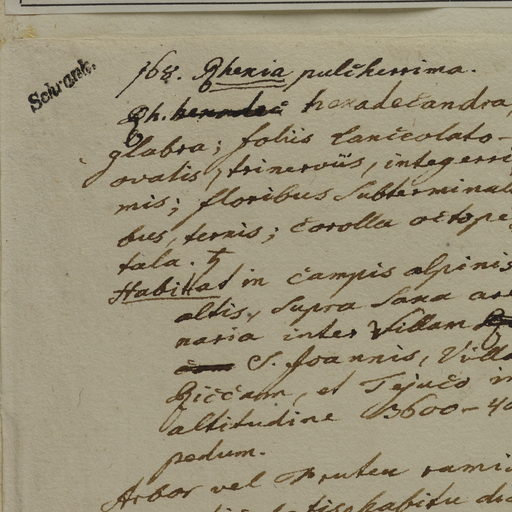 Schrank.
168. Rhexia pulcherrima.
Rh. hexadecandra,
glabra; foliis lanceolato-
ovatis, trinerviis, integerri
mis; floribus subterminali
bus, ternis; corolla octope
tala. ♄
Habitat in campis alpinis
altis, supra saxa are
naria inter Villam
S. Joannis, Villa
Riccam, et Tejuco in
altitudine 3600-40
pedum.
Arbor vel Frutex rami
habitu